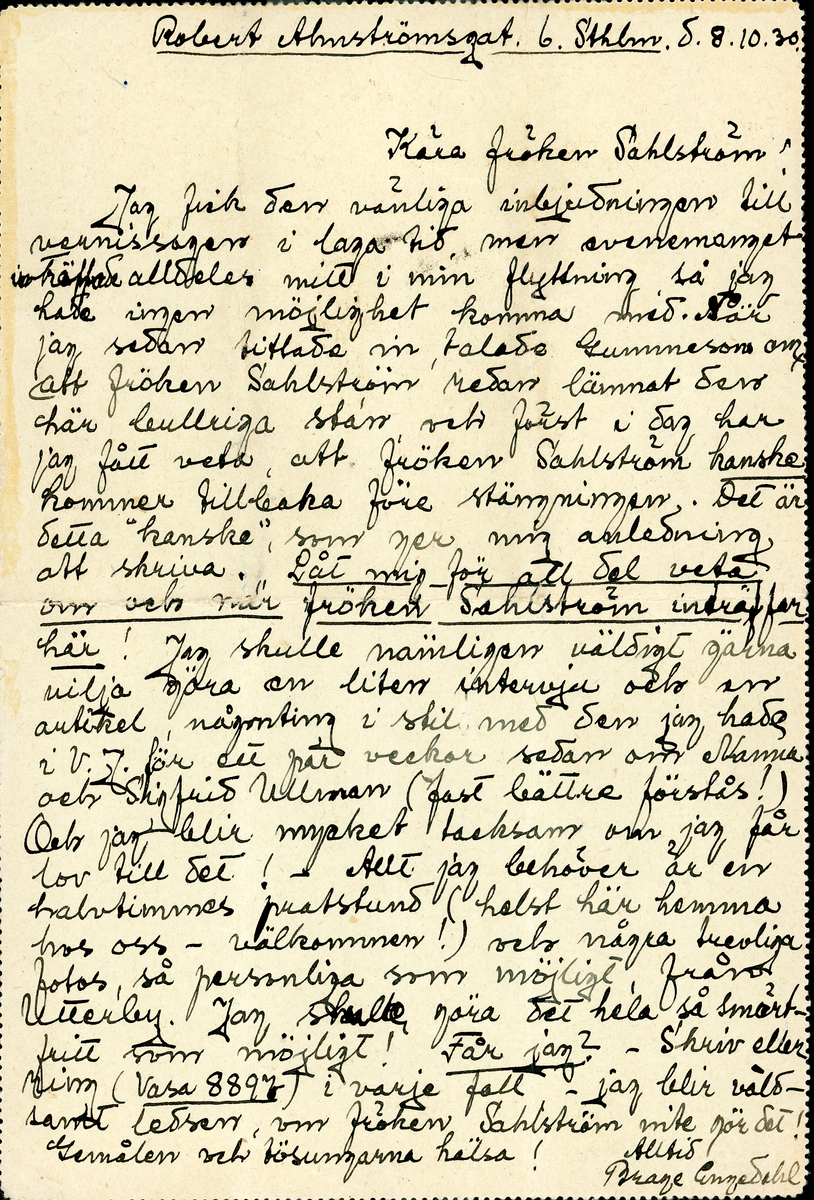 Robert Almströmsgat. 6. Sthlm. d. 8.10.30.
Kära fröken Sahlström!
Jag fick den vänliga inbjudningen till
vernissagen i laga tid, men evenemanget
inträffade alldeles mitt i min flyttning, så jag
hade ingen möjlighet komma med. När
jag sedan tittade in, talade Gummeson om
att fröken Sahlström redan lämnat den
här bullriga stán och först i dag har
jag fått veta, att fröken Sahlström kanske
kommer tillbaka före stängningen. Det är
detta "kanske", som ger mig anledning
att skriva. Låt mig för all del veta
om och när fröken Sahlström inträffar
här! Jag skulle nämligen väldigt gärna
vilja göra en liten intervju och en
artikel, någonting i stil med den jag hade
i V. J. för ett par veckor sedan om Nanna
och Sigfrid Ullman (fast bättre förstås!)
Och jag blir mycket tacksam om jag får
lov till det! - Allt jag behöver är en
halvtimmes pratstund (helst här hemma
hos oss - välkommen!) och några trevliga
fotos, så personliga som möjligt, från
Utterby. Jag skulle göra det hela så smärt-
fritt som möjligt! Får jag? - Skriv eller
ring (Vasa 8897) i varje fall, - jag blir våld-
samt ledsen, om fröken Sahlström inte gör det!
Gemålen och tösungarna hälsa! Alltid
Brage Engdahl